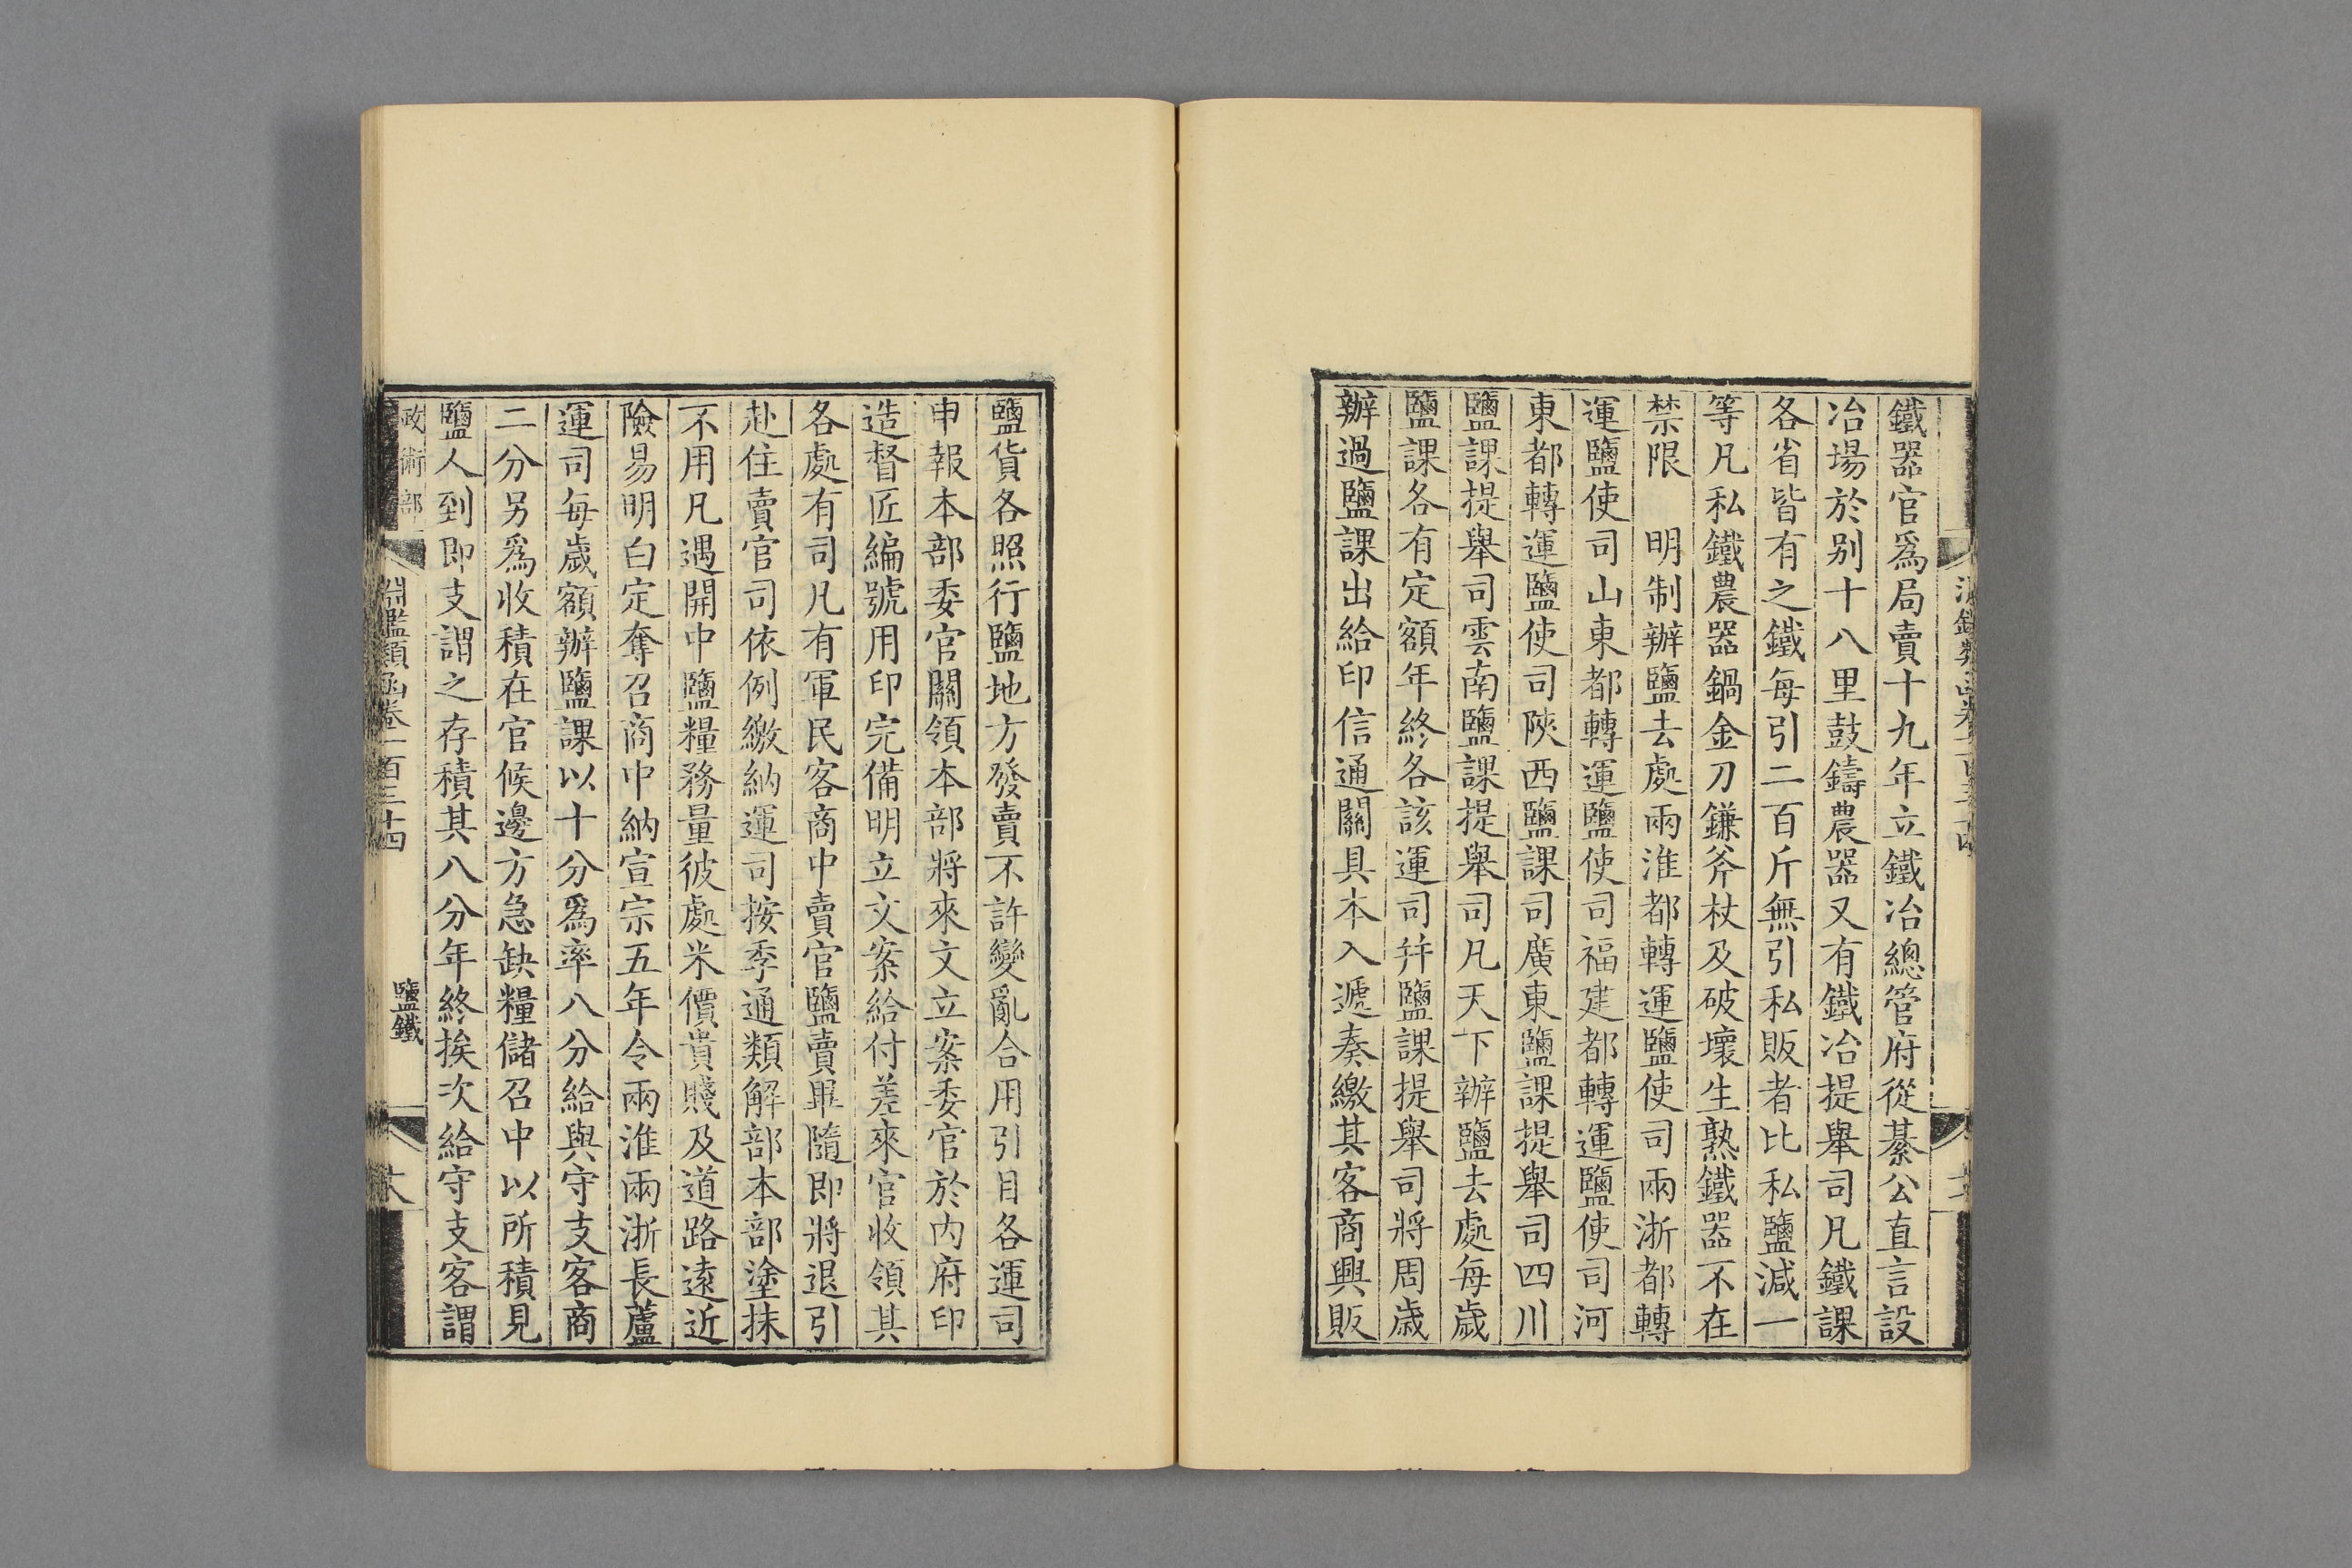 鐵器官爲局賣十九年立鐵冶總管府從綦公直言設
冶場於别十八里鼓鑄農器又有鐵冶提舉司凡鐵課
各省皆有之鐵每引二百斤無引私販者比私鹽減一
等凡私鐵農器鍋金刀鎌斧杖及破壞生熟鐵器不在
禁限　明制辦鹽去處兩淮都轉運鹽使司兩浙都轉
運鹽使司山東都轉運鹽使司福建都轉運鹽使司河
東都轉運鹽使司陝西鹽課司廣東鹽課提舉司四川
鹽課提舉司雲南鹽課提舉司凡天下辦鹽去處每歲
鹽課各有定額年終各該運司幷鹽課提舉司將周歲
辦過鹽課出給印信通關具本入遞奏繳其客商興販
鹽貨各照行鹽地方發賣不許變亂合用引目各運司
申報本部委官關領本部將來文立案委官於内府印
造督匠編號用印完備明立文案給付差來官收領其
各處有司凡有軍民客商中賣官鹽賣畢隨即將退引
赴住賣官司依例繳納運司按季通類解部本部塗抹
不用凡遇開中鹽糧務量彼處米價貴賤及道路遠近
險易明白定奪召商中納宣宗五年令兩淮兩浙長蘆
運司每歲額辦鹽課以十分爲率八分給與守支客商
二分另爲收積在官候邊方急缺糧儲召中以所積見
鹽人到即支謂之存積其八分年終挨次給守支客謂
政術部　淵鑑類函卷一百三十四　鹽鐵